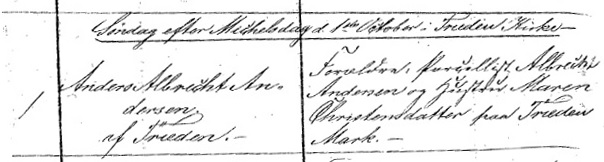 Søndag efter Michelsdag d. 1ste October i Trueden Kirke —
1
Anders Albrecht An-
dersen,
af Trueden. —
Forældre, Parcellist Albrecht
Andersen og Hustru Maren
Christensdatter paa Trueden
Mark. —